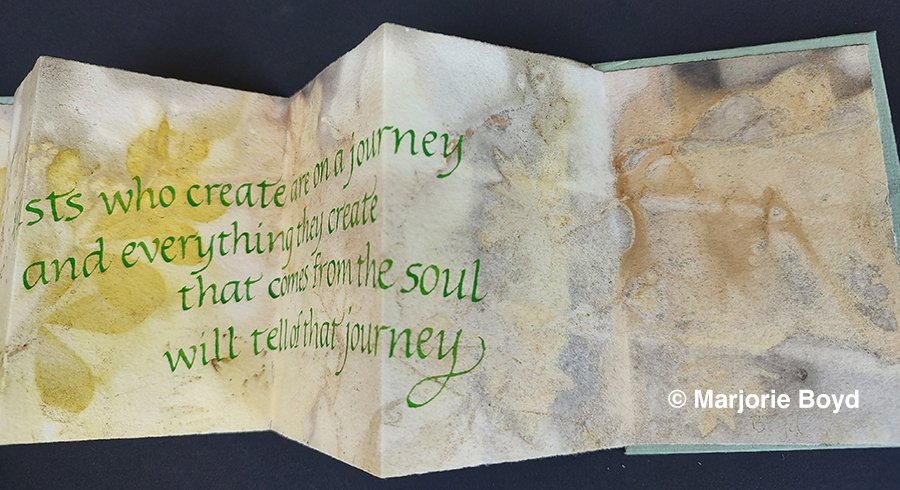 sts who create are on a journey
and everything they create
that comes from the soul
will tell of that journey
© Marjorie Boyd